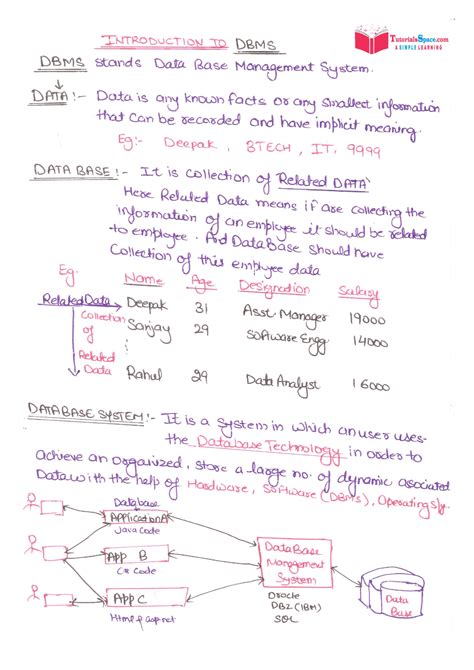 INTRODUCTION TO DBMS
TutorialsSpace.com
A SIMPLE LEARNING
DBMS stands Data Base Management System.
DATA :- Data is any known facts or any smallest information
that can be recorded and have implicit meaning.
Eg:- Deepak, BTECH, IT, 9999
DATA BASE :- It is collection of Related DATA
Here Related Data means if are collecting the
information of an employee it should be related
to employee. And DataBase should have
Collection of this employee data
Eg. Name Age Designation Salary
Related Data Deepak 31 Asst Manager 19000
Collection Sanjay 29 Software Engg 14000
of
Related
Data Rahul 29 Data Analyst 16000
DATABASE SYSTEM :- It is a system in which an user uses
the Database Technology in order to
achieve an Organized, store a large no. of dynamic asociated
Data with the help of Hardware, Software (DBMS), Operating Sys.
Database
Application A
Java Code
App B
C# Code
App C
Html & asp.net
DataBase
Management
System
Oracle
DB2 (IBM)
SQL
Data
Base